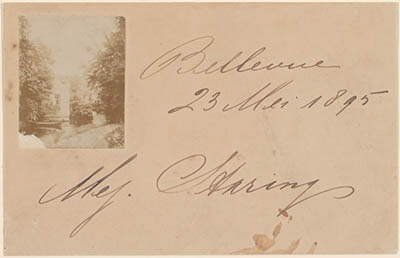 Bellevue
23 Mei 1895
Mej. Staring